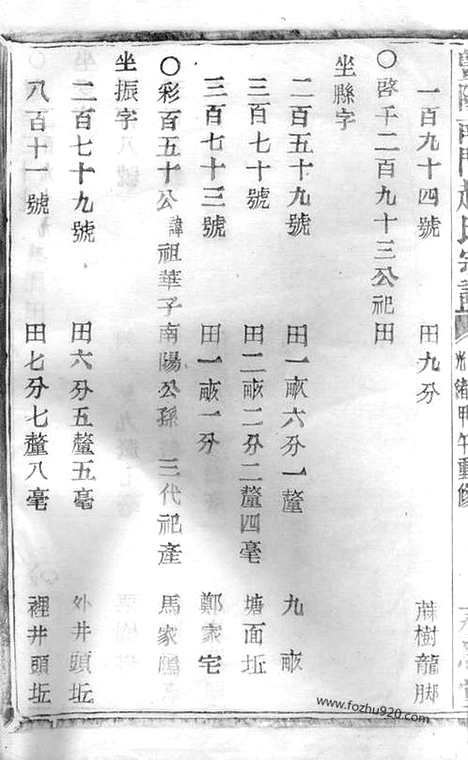 南門趙氏宗譜 光緒甲午重修
一百九十四號 田九分 蔴樹龍脚
○啓千二百九十三公祀田
坐縣字
二百五十九號 田一畝六分一釐 九畝
三百七十號 田二畝二分二釐四毫 塘面坵
三百七十三號 田一畝一分 鄭家宅
○彩百五十公諱祖華子南陽公孫 三代祀產 馬家
坐振字
二百七十九號 田六分五釐五毫 外井頭坵
八百十一號 田七分七釐八毫 裡井頭坵
www.fozhu920.com